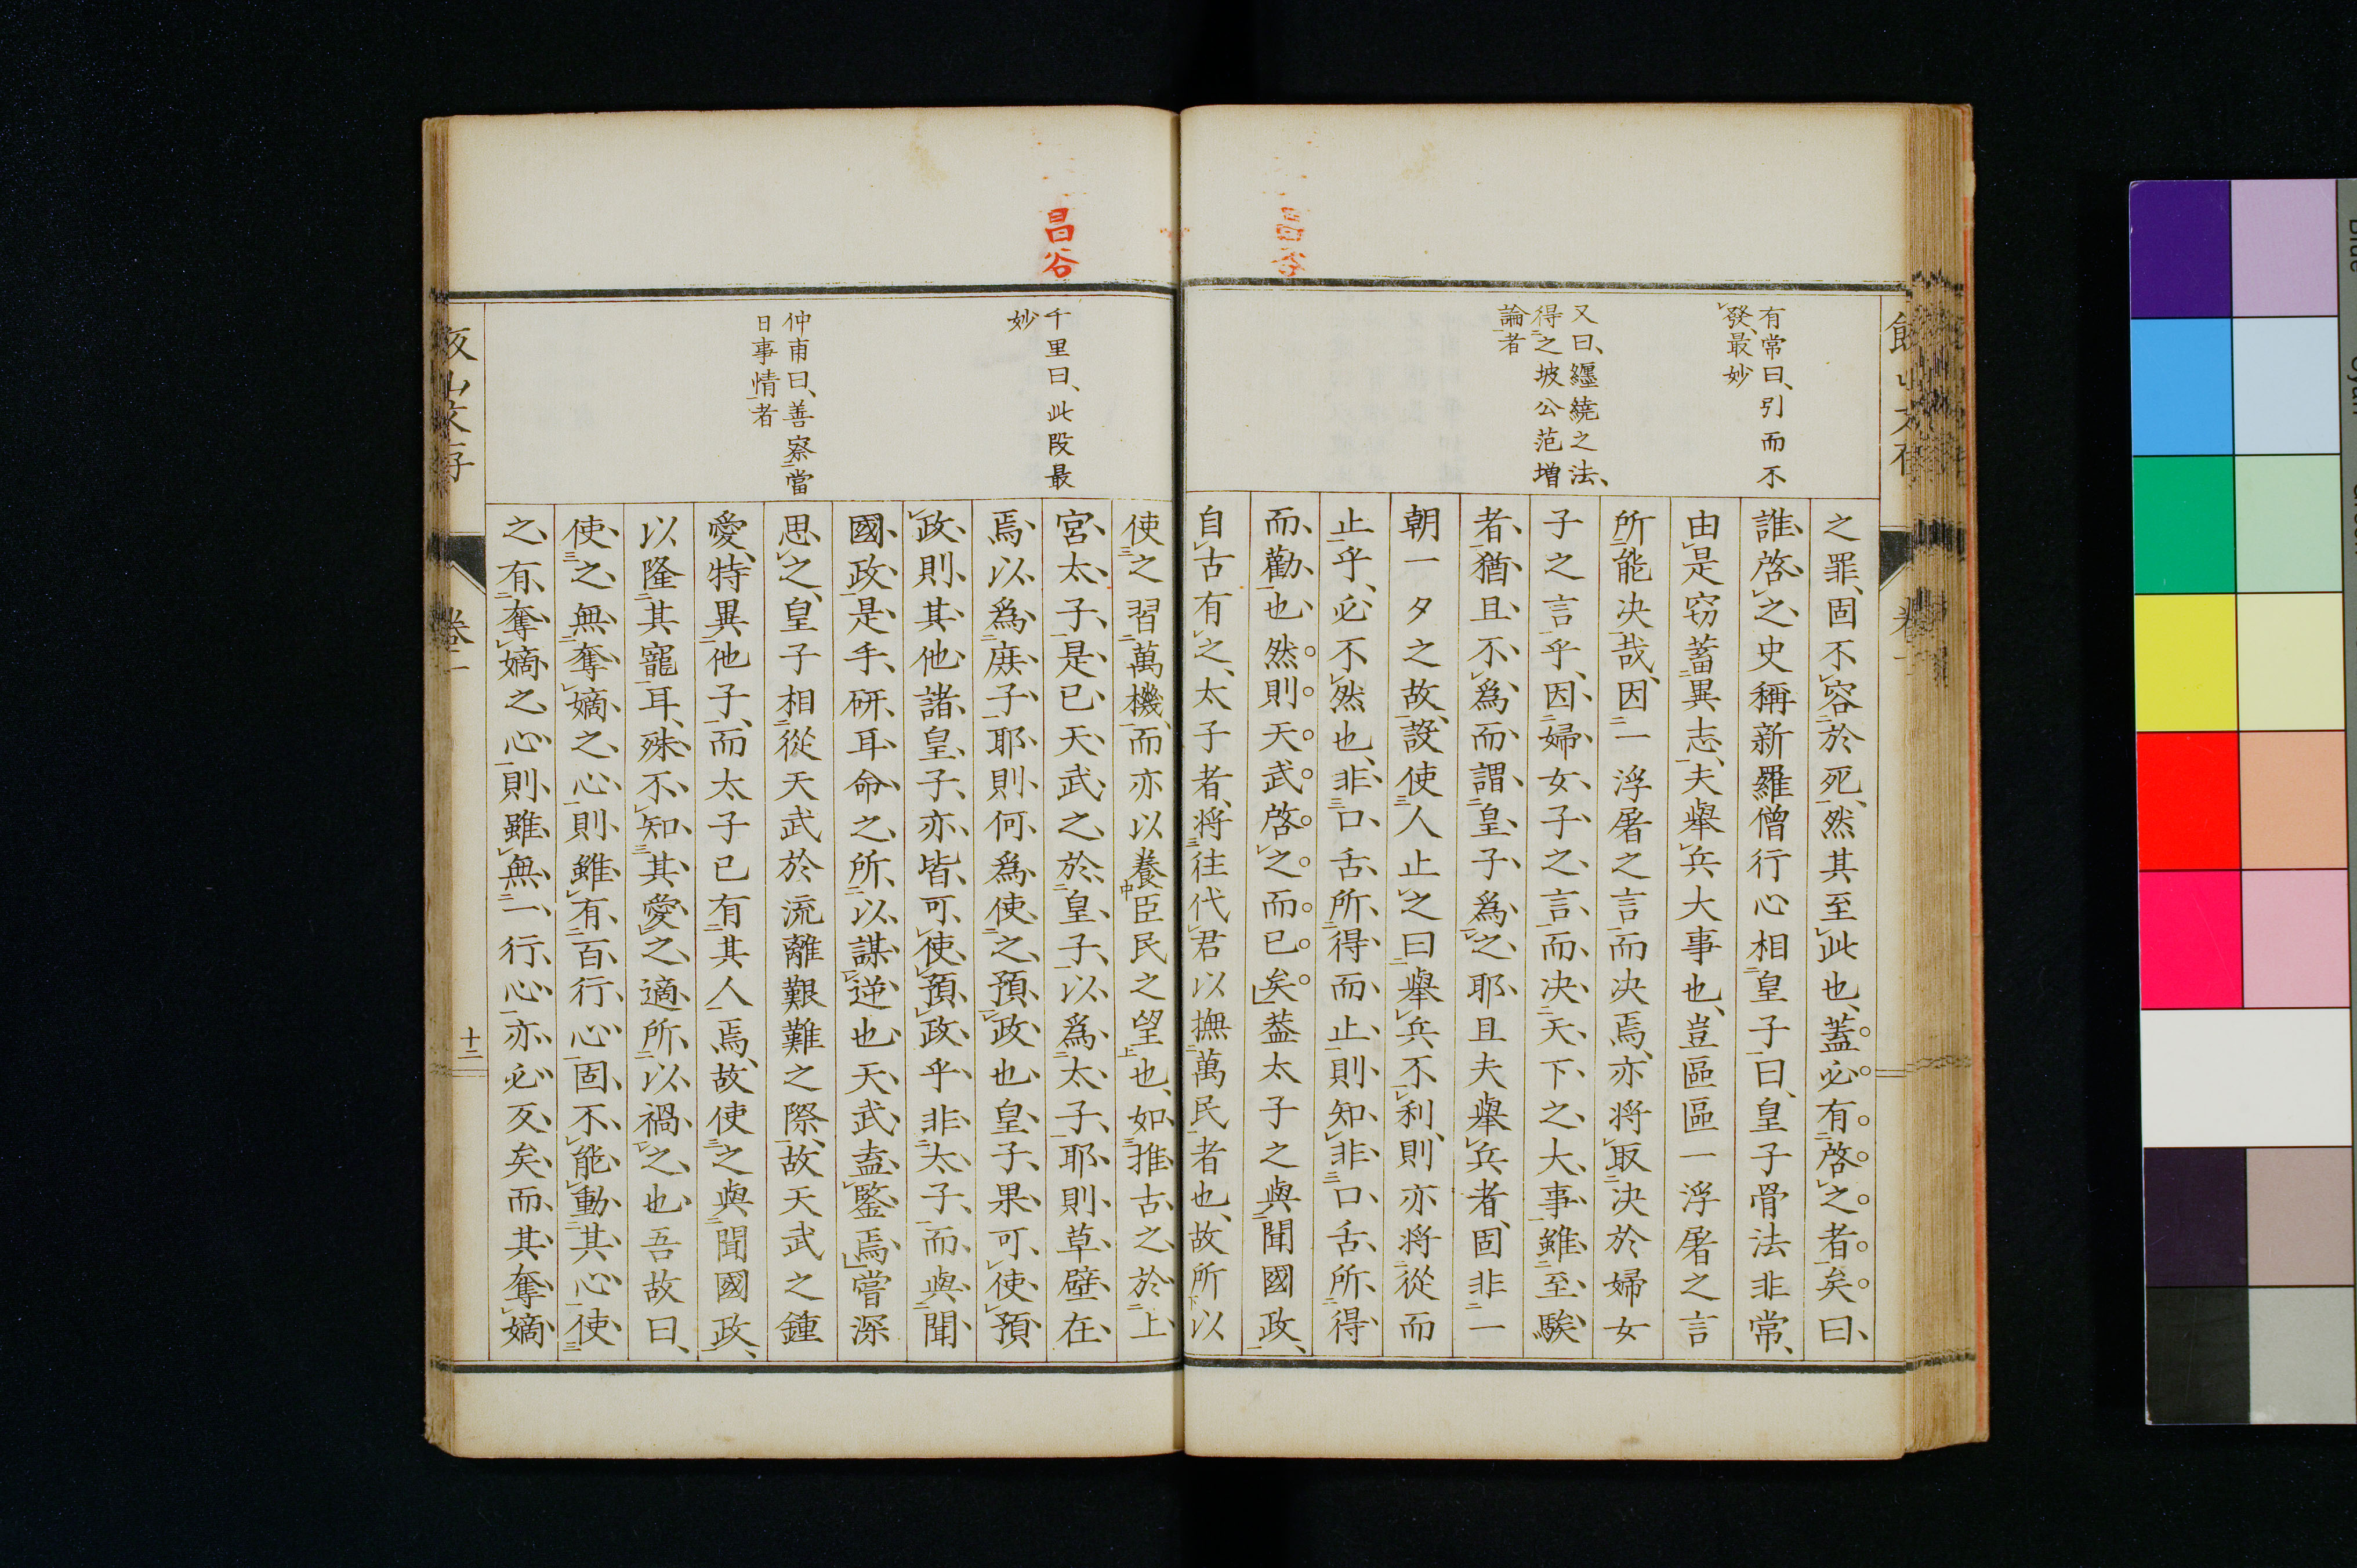 昌谷
有常曰、引而不
發、最妙
又曰、纒繞之法、
得之坡公范増
論者
之罪、固不容於死、然其至此也、蓋必有啓之者矣曰、
誰啓之史稱新羅僧行心相皇子曰、皇子骨法非常、
由是窃蓄異志、夫舉兵大事也、豈區區一浮屠之言
所能决哉、因一浮屠之言而决焉、亦将取决於婦女
子之言乎、因婦女子之言而决天下之大事雖至騃
者猶且不爲而謂皇子爲之耶且夫舉兵者、固非一
朝一夕之故、設使人止之曰舉兵不利、則亦将從而
止乎、必不然也、非口舌所得而止則知非口舌所得
而勸也然則天武啓之而已矣葢太子之與聞國政、
自古有之、太子者、将往代君以撫萬民者也、故所以
昌谷
千里曰、此段最
妙
仲甫曰、善察當
日事情者
使之習萬機、而亦以養臣民之望也、如推古之於上
宮太子是已天武之於皇子以爲太子耶則草壁在
焉以爲庶子耶則何爲使之預政也皇子果可使預
政則其他諸皇子亦皆可使預政乎非太子而與聞
國政是手研耳命之所以謀逆也天武盍鑒焉嘗深
思之、皇子相從天武於流離艱難之際、故天武之鍾
愛、特異他子、而太子已有其人焉、故使之與聞國政、
以隆其寵耳、殊不知其愛之適所以禍之也吾故曰、
使之無奪嫡之心則雖有百行心固不能動其心使
之有奪嫡之心則雖無一行心亦必反矣而其奪嫡
卷一
十二